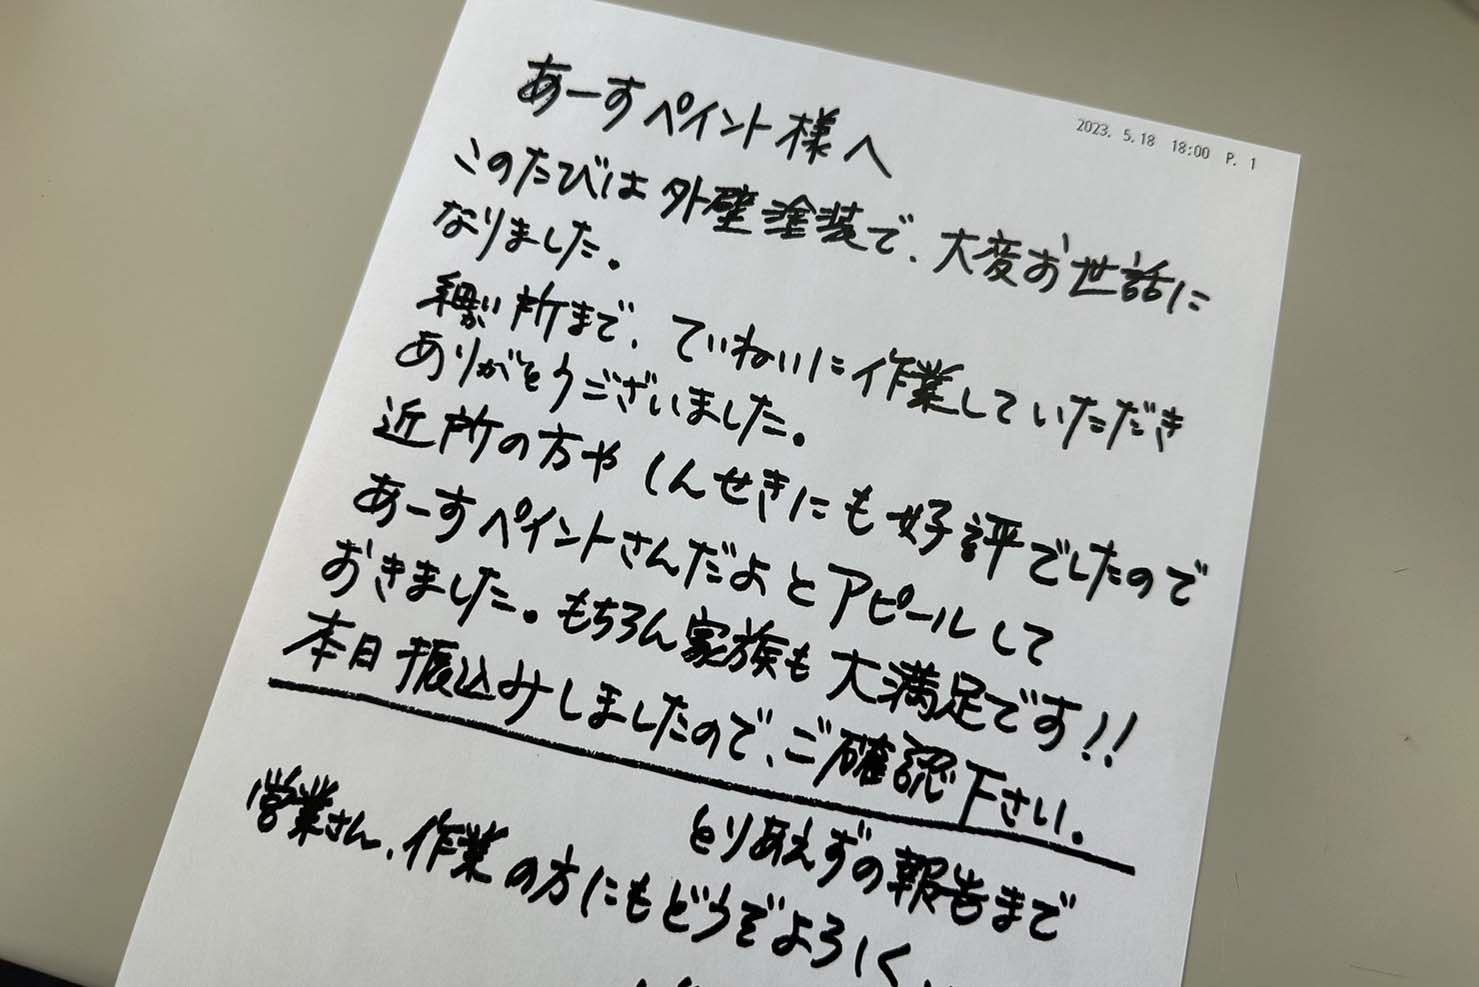 2023. 5.18 18:00 P. 1
あーすペイント様へ
このたびは外壁塗装で、大変お世話に
なりました。
細い所まで、ていねいに作業していただき
ありがとうございました。
近所の方やしんせきにも好評でしたので
あーすペイントさんだよとアピールして
おきました。もちろん家族も大満足です!!
本日振込みしましたので、ご確認下さい。
とりあえずの報告まで
営業さん、作業の方にもどうぞよろしく、